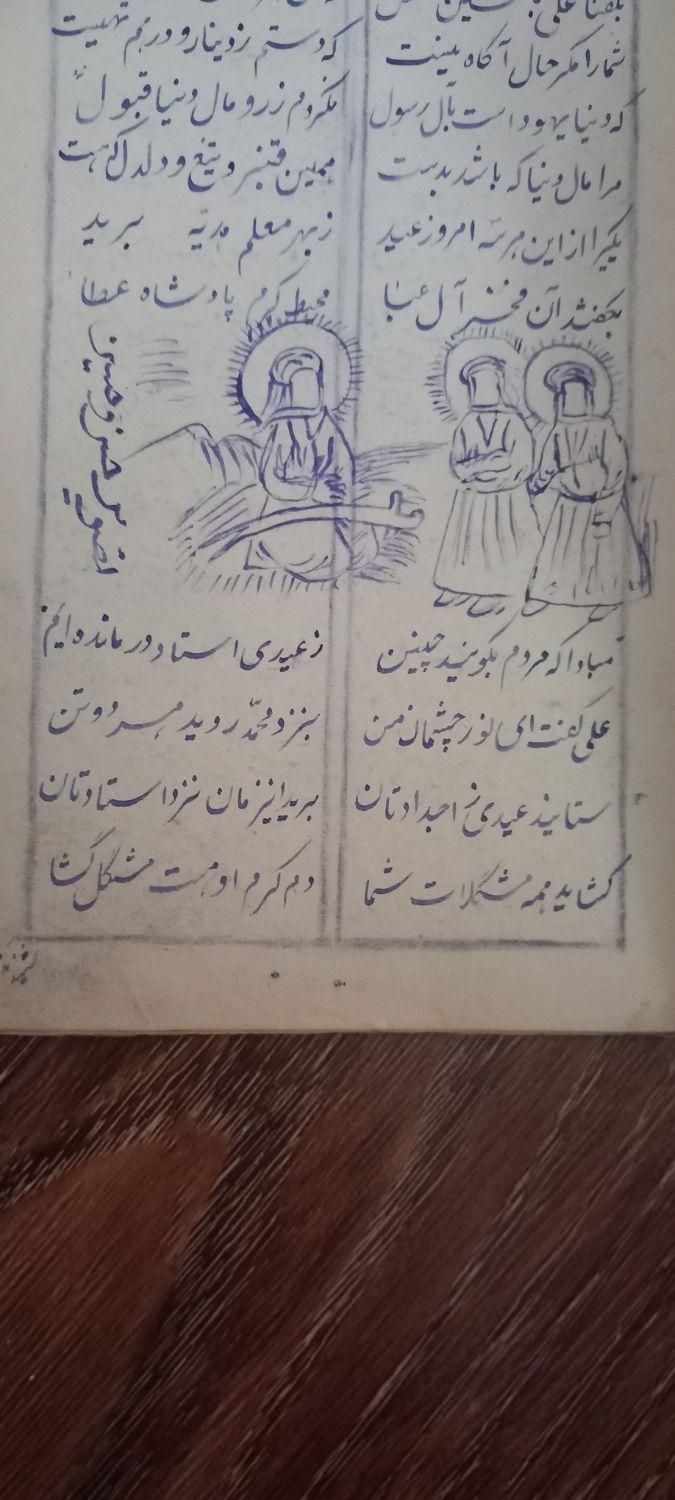 بگفتا علی با حسین
شما را مگر حال آگاه نیست که دستم ز دینار و درهم تهیست
که دنیا یهود است بآل رسول نکردم زر و مال دنیا قبول
مرا مال دنیا که باشد بدست همین قنبر و تیغ و دلدل که هست
یکی را از این هر سه امروز عید ز بهر معلم هدیه برید
بگفتند آن مفخر آل عبا محیط کرم پادشاه عطا
تصویر حسن و حسین
مبادا که مردم بگویند چنین ز عیدی استاد درمانده‌ایم
علی گفت ای نور چشمان من بنزد محمد روید هر دو تن
ستانید عیدی ز اجدادتان برید این زمان نزد استادتان
گشاید همه مشکلات شما دم کرم او هست مشکل گشا